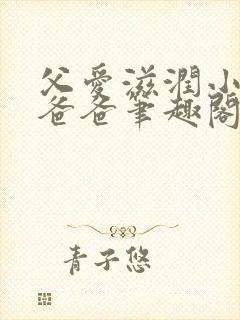 父愛滋潤小
爸爸筆趣閣
青子悠